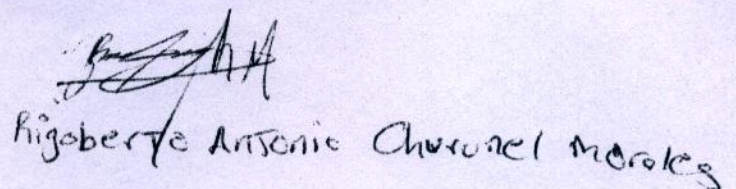 Rigoberto Antonio Churunel Morales